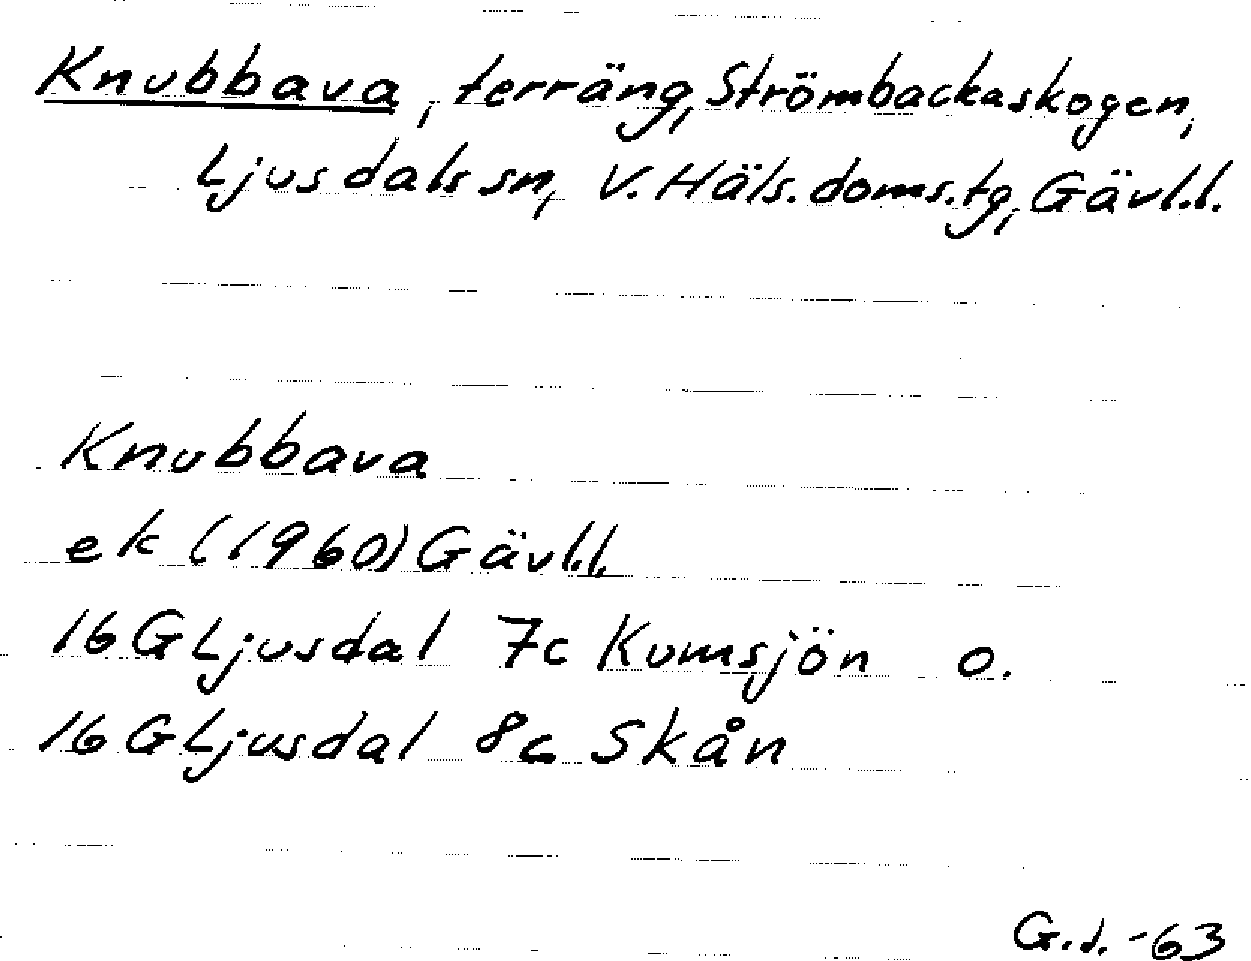 Knubbava, terräng, Strömbackaskogen,
Ljusdals sn, V. Häls. doms.tg, Gävl.l.
Knubbava
ek (1960) Gävl.l.
16G Ljusdal 7c Kumsjön o.
16G Ljusdal 8c Skån
G.d. -63